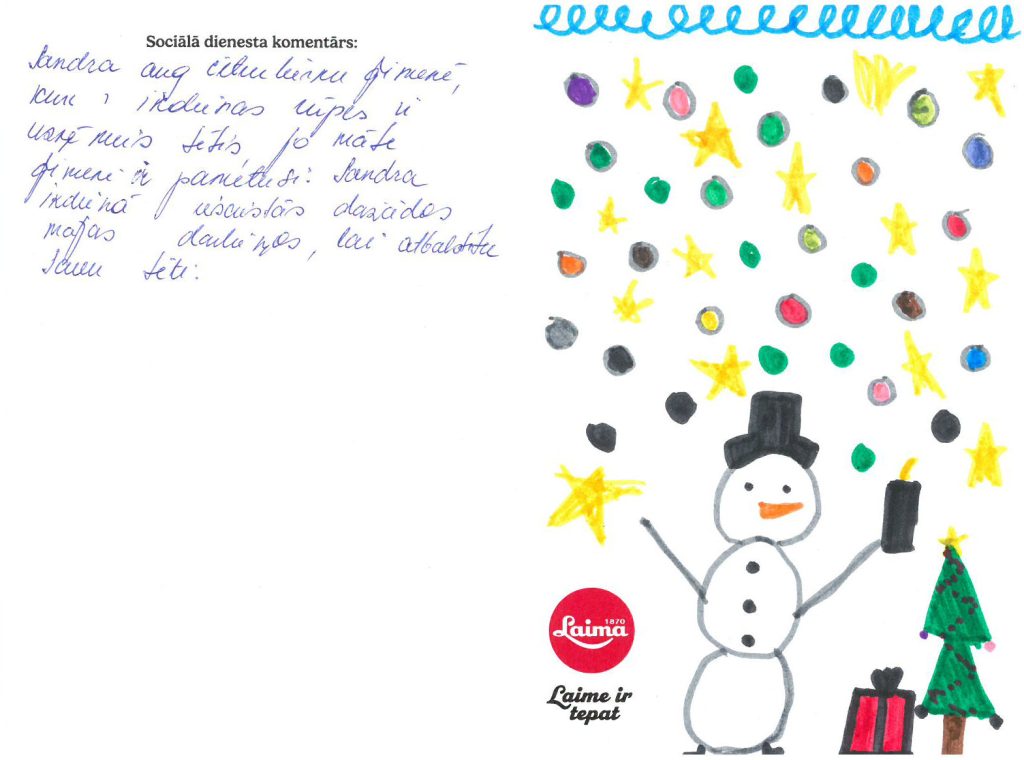 Sociālā dienesta komentārs:
Sandra aug četru bērnu ģimenē,
kur ikdienas rūpes ir
uzņēmies tētis jo māte
ģimeni ir pametusi. Sandra
ikdienā iesaistās dažādos
mājas darbiņos, lai atbalstītu
savu tēti.
1870
Laima
Laime ir
tepat